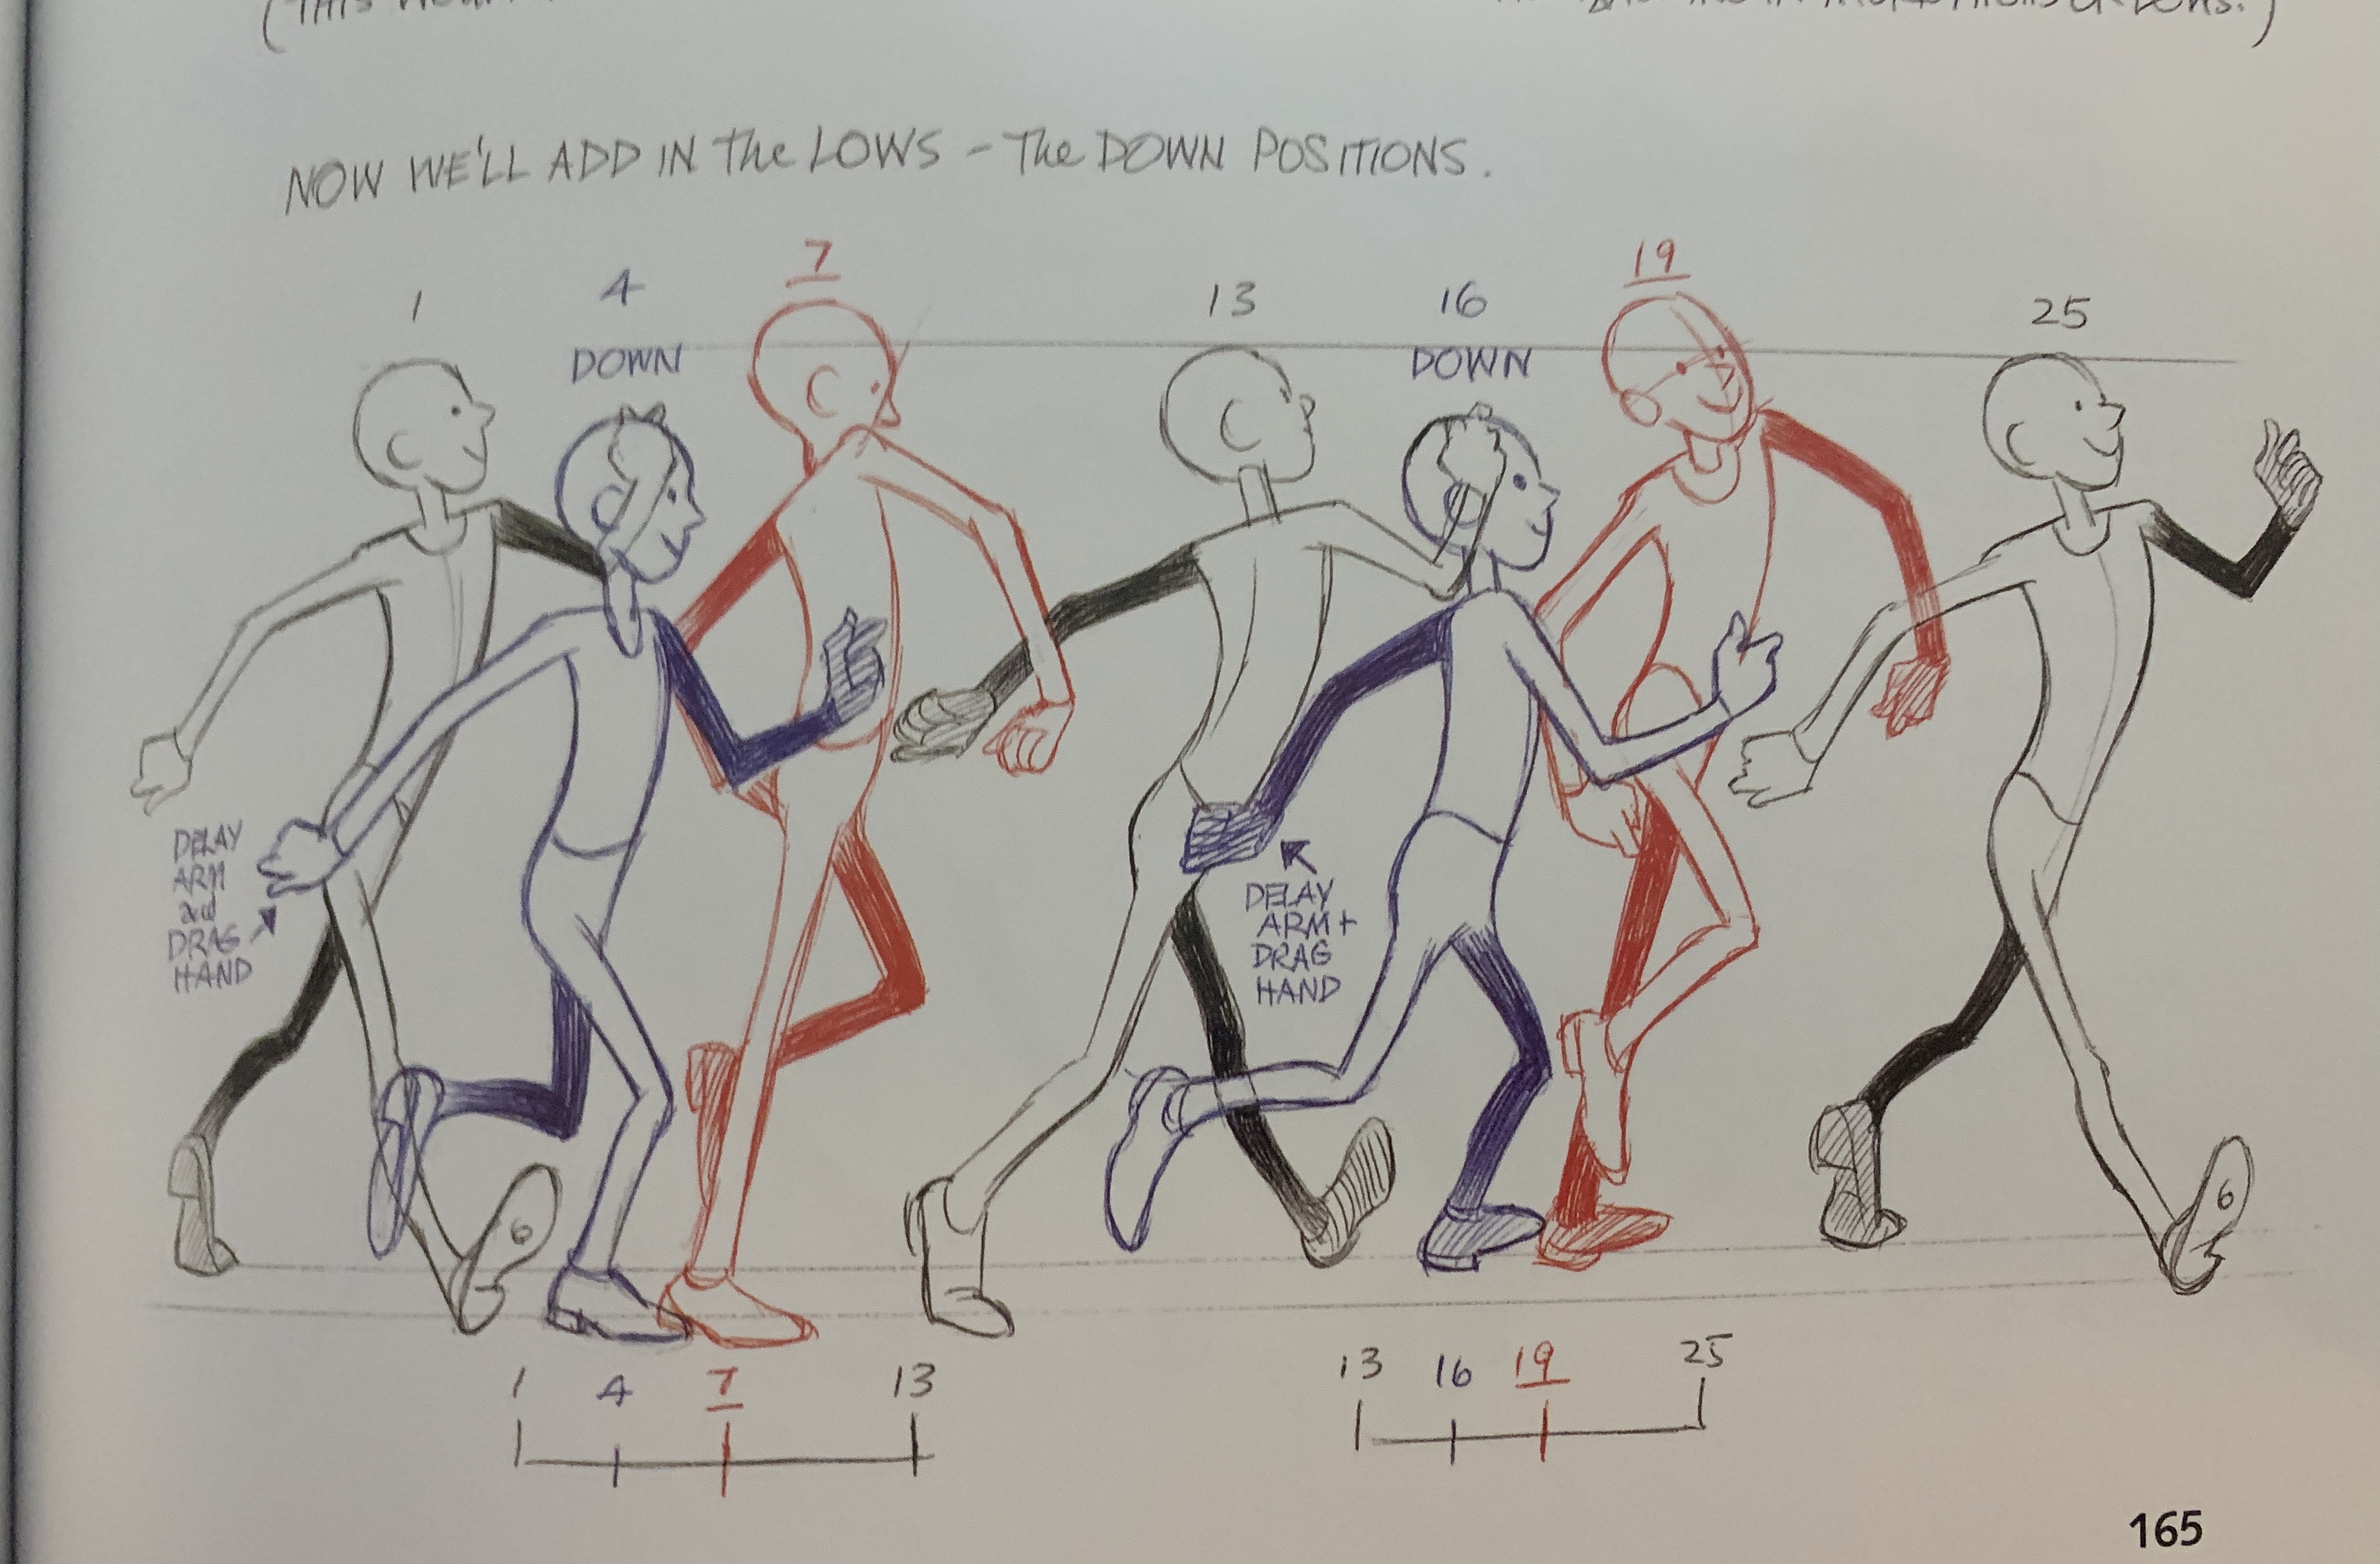 (THIS
NOW WE'LL ADD IN The LOWS - The DOWN POSITIONS.
1 4 7 13 16 19 25
DOWN DOWN
DELAY
ARM
and
DRAG
HAND
DELAY
ARM +
DRAG
HAND
6 6
1 4 7 13
13 16 19 25
165